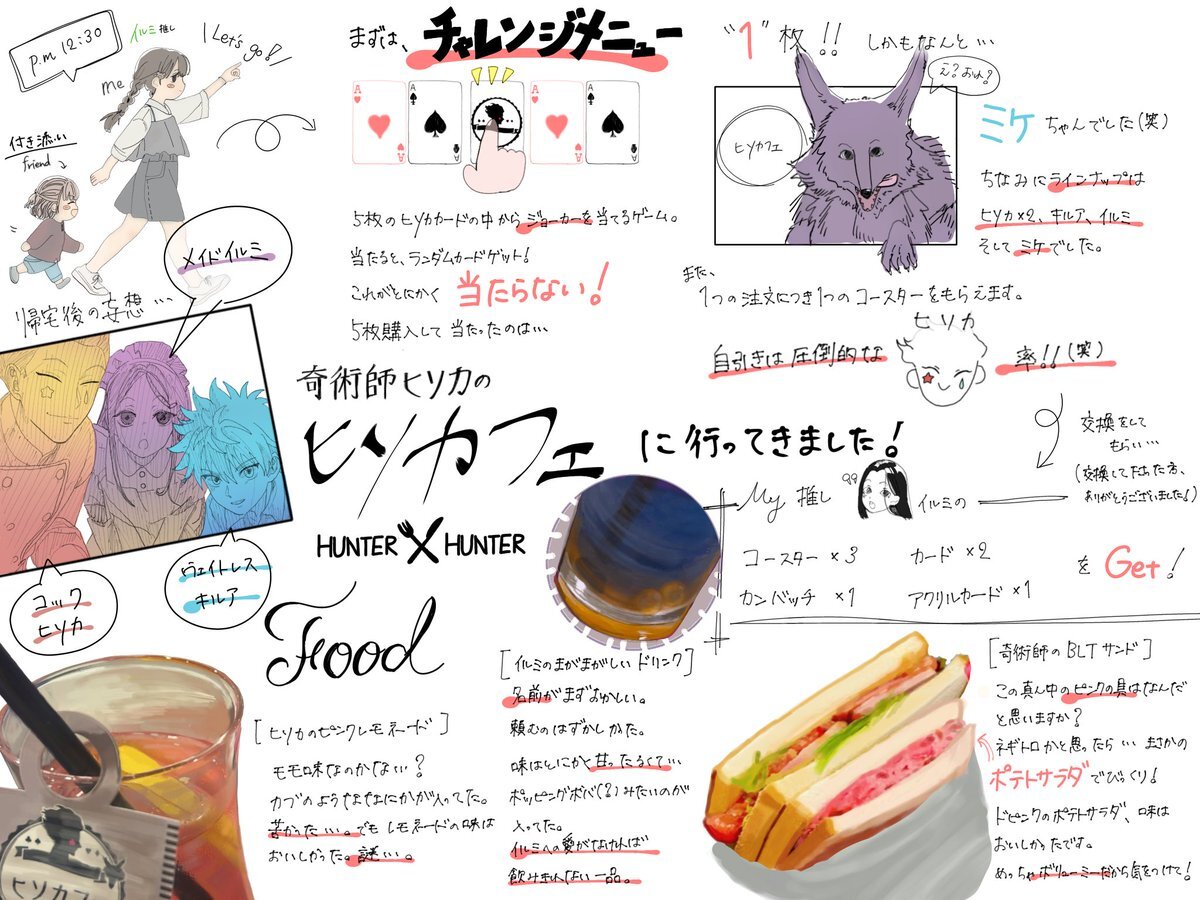 p.m 12:30
イルミ推し
Let's go!
me
付き添い
friend
まずは、チャレンジメニュー
A A A A A
5枚のヒソカカードの中からジョーカーを当てるゲーム。
当たると、ランダムカードゲット!
これがとにかく 当たらない!
5枚購入して当たったのは…
"1"枚!! しかもなんと…
え?おれ?
ヒソカフェ
ミケちゃんでした(笑)
ちなみにラインナップは
ヒソカ×2、キルア、イルミ
そしてミケでした。
また、
1つの注文につき1つのコースターをもらえます。
自引きは圧倒的な
ヒソカ
率!!(笑)
交換をして
もらい…
(交換して下さった方、
ありがとうございました!)
My 推し
イルミの
コースター ×3
カード ×2
カンバッチ ×1
アクリルカード ×1
を Get!
帰宅後の妄想…
メイドイルミ
コック
ヒソカ
ウェイトレス
キルア
奇術師ヒソカの
ヒソカフェ
に行ってきました!
HUNTER×HUNTER
Food
[ヒソカのピンクレモネード]
モモ味なのかな…?
カブのようななにかが入ってた。
苦かった…。でもレモネードの味は
おいしかった。謎…。
ヒソカフ
[イルミのまがまがしいドリンク]
名前がまずおかしい。
頼むのはずかしかった。
味はとにかく甘ったるくて…
ポッピングボバ(?)みたいのが
入ってた。
イルミへの愛がなければ
飲みきれない一品。
[奇術師のBLTサンド]
この真ん中のピンクの具はなんだ
と思いますか?
ネギトロかと思ったら…まさかの
ポテトサラダでびっくり!
ドピンクのポテトサラダ、味は
おいしかったです。
めっちゃボリューミーだから気をつけて!